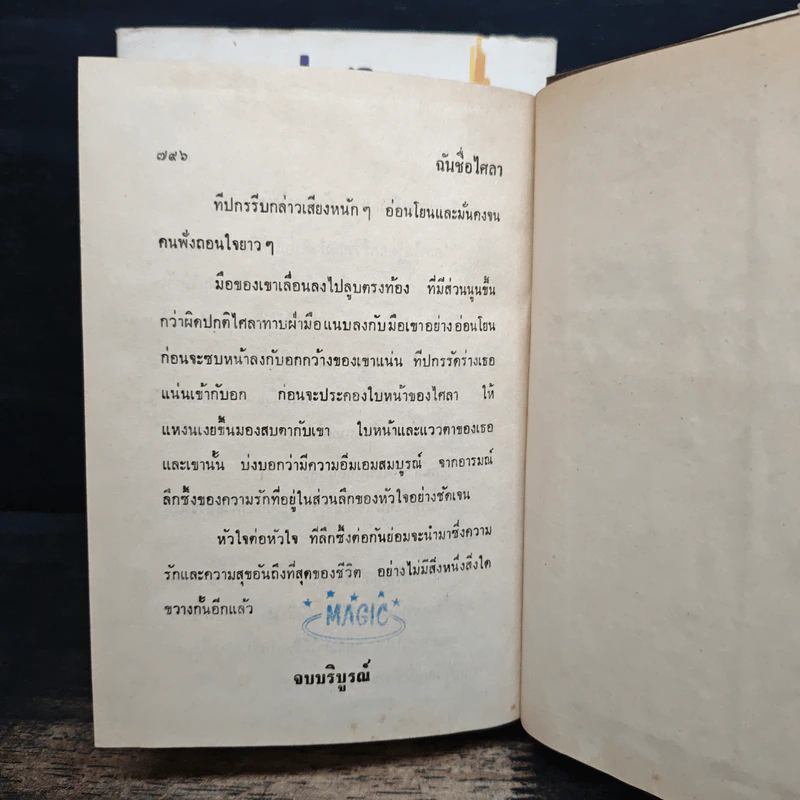 ๗๙๖
ฉันชื่อไศลา
ทีปกรรีบกล่าวเสียงหนัก ๆ อ่อนโยนและมั่นคงจน
คนฟังถอนใจยาว ๆ
มือของเขาเลื่อนลงไปลูบตรงท้อง ที่มีส่วนนูนขึ้น
กว่าผิดปกติไศลาทาบฝ่ามือแนบลงกับมือเขาอย่างอ่อนโยน
ก่อนจะซบหน้าลงกับอกกว้างของเขาแน่น ทีปกรรัดร่างเธอ
แน่นเข้ากับอก ก่อนจะประคองใบหน้าของไศลา ให้
แหงนเงยขึ้นมองสบตากับเขา ใบหน้าและแววตาของเธอ
และเขานั้น บ่งบอกว่ามีความอิ่มเอมสมบูรณ์ จากอารมณ์
ลึกซึ้งของความรักที่อยู่ในส่วนลึกของหัวใจอย่างชัดเจน
หัวใจต่อหัวใจ ที่ลึกซึ้งต่อกันย่อมจะนำมาซึ่งความ
รักและความสุขอันถึงที่สุดของชีวิต อย่างไม่มีสิ่งหนึ่งสิ่งใด
ขวางกั้นอีกแล้ว
MAGIC
จบบริบูรณ์